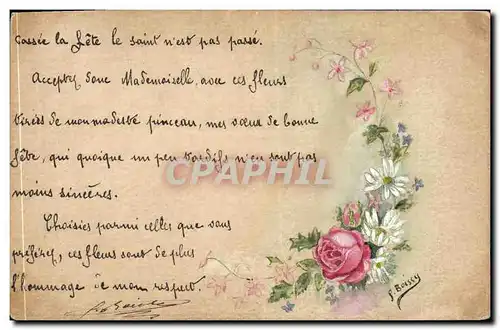 Passée la fête le saint n'est pas passé.
Acceptez donc Mademoiselle, avec ces fleurs
tirées de mon modeste pinceau, mes vœux de bonne
fête, qui quoique un peu tardifs n'en sont pas
moins sincères.
Choisies parmi celles que vous
préférez, ces fleurs sont de plus
l'hommage de mon respect.
CPAPHIL.COM